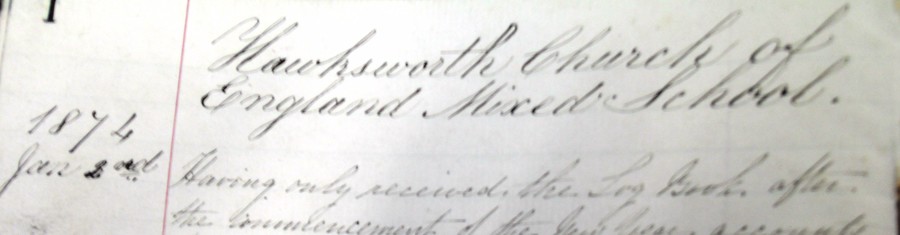 1
Hawksworth Church of
England Mixed School.
1874
Jan 2nd
Having only received the Log Book after
the commencement of the New Year accounts